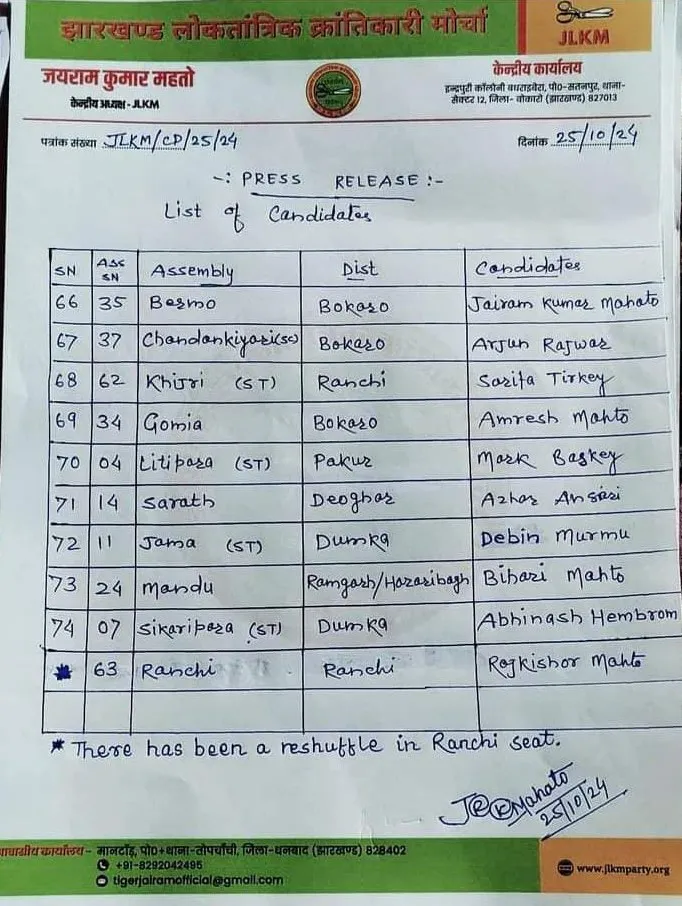 झारखण्ड लोकतांत्रिक क्रांतिकारी मोर्चा
JLKM
जयराम कुमार महतो
केन्द्रीय अध्यक्ष - JLKM
केन्द्रीय कार्यालय
इन्द्रपुरी कॉलोनी बाधराइबेरा, पो०-सतनपुर, थाना-
सेक्टर 12, जिला- बोकारो (झारखण्ड) 827013
पत्रांक संख्या JLKM/CP/25/24
दिनांक 25/10/24
-: PRESS RELEASE :-
List of Candidates
SN Ass SN Assembly Dist Candidates
66 35 Bermo Bokaro Jairam Kumar Mahato
67 37 Chandankiyari(SC) Bokaro Arjun Rajwar
68 62 Khijri (ST) Ranchi Sarita Tirkey
69 34 Gomia Bokaro Amresh Mahto
70 04 Litipara (ST) Pakur Mark Baskey
71 14 Sarath Deoghar Azhar Ansari
72 11 Jama (ST) Dumka Debin Murmu
73 24 Mandu Ramgarh/Hazaribagh Bihari Mahto
74 07 Sikaripara (ST) Dumka Abhinash Hembrom
* 63 Ranchi Ranchi Rajkishor Mahto
* There has been a reshuffle in Ranchi seat.
Mahato
25/10/24
कार्यालय - मानटाँड़, पो०+थाना-तोपचाँची, जिला-धनबाद (झारखण्ड) 828402
+91-8292042495
tigerjairamofficial@gmail.com
www.jlkmparty.org